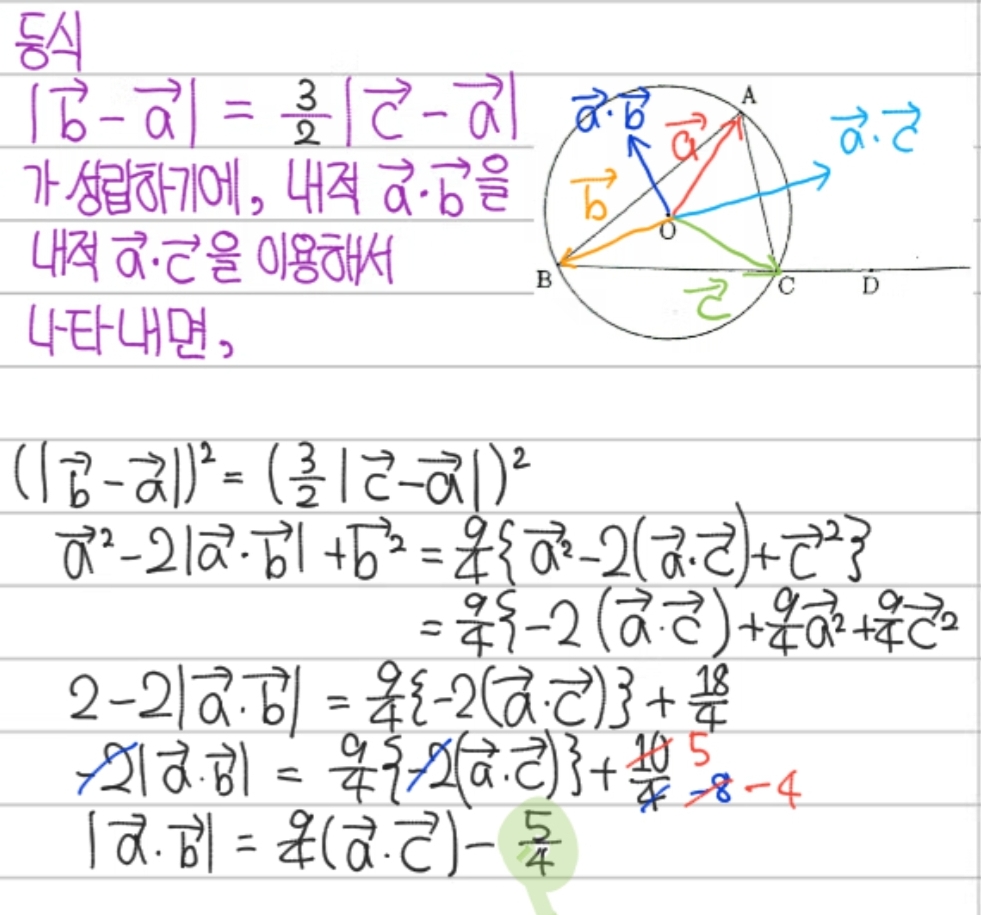 등식
|b⃗ - a⃗| = 3/2 |c⃗ - a⃗|
가 성립하기에, 내적 a⃗·b⃗을
내적 a⃗·c⃗을 이용해서
나타내면,
A
a⃗·b⃗
a⃗
a⃗·c⃗
b⃗
O
B
C
D
c⃗
(|b⃗ - a⃗|)² = (3/2 |c⃗ - a⃗|)²
a⃗² - 2|a⃗·b⃗| + b⃗² = 9/4{a⃗² - 2(a⃗·c⃗) + c⃗²}
= 9/4{-2(a⃗·c⃗) + 9/4 a⃗² + 9/4 c⃗²
2 - 2|a⃗·b⃗| = 9/4{-2(a⃗·c⃗)} + 18/4
-2|a⃗·b⃗| = 9/4{-2(a⃗·c⃗)} + 10/4 5 -8 -4
|a⃗·b⃗| = 9/4(a⃗·c⃗) - 5/4